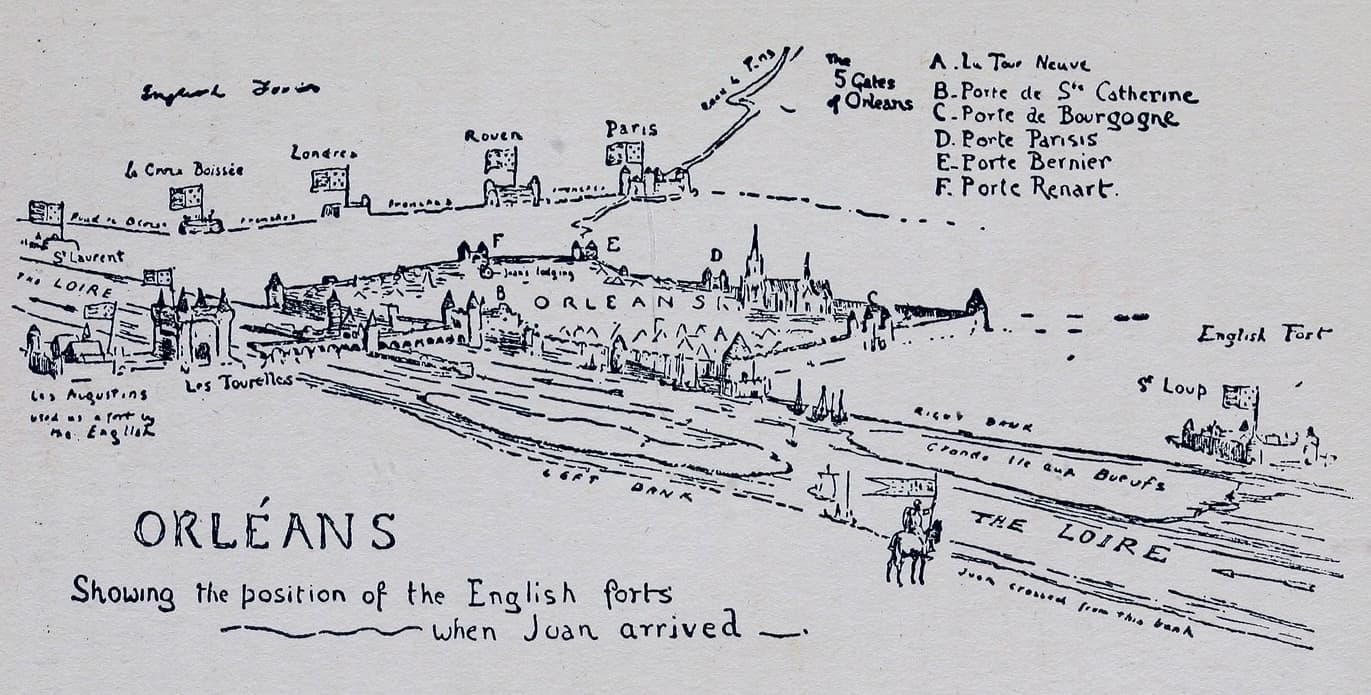 English Forts
The
5 Gates
of Orleans
A. La Tour Neuve
B-Porte de Ste Catherine
C-Porte de Bourgogne
D. Porte Parisis
E-Porte Bernier
F. Porte Renart.
Road to Paris
Paris
Rouen
Londres
la Croix Boissée
trenches
trenches
trenches
St Laurent
THE LOIRE
F
E
D
Joan's lodging
B
ORLEANS
C
English Fort
St Loup
Les Tourelles
Les Augustins
used as a fort by
the English
RIGHT BANK
Grande Ile aux Boeufs
LEFT BANK
THE LOIRE
Joan crossed from this bank
ORLÉANS
Showing the position of the English forts
when Joan arrived